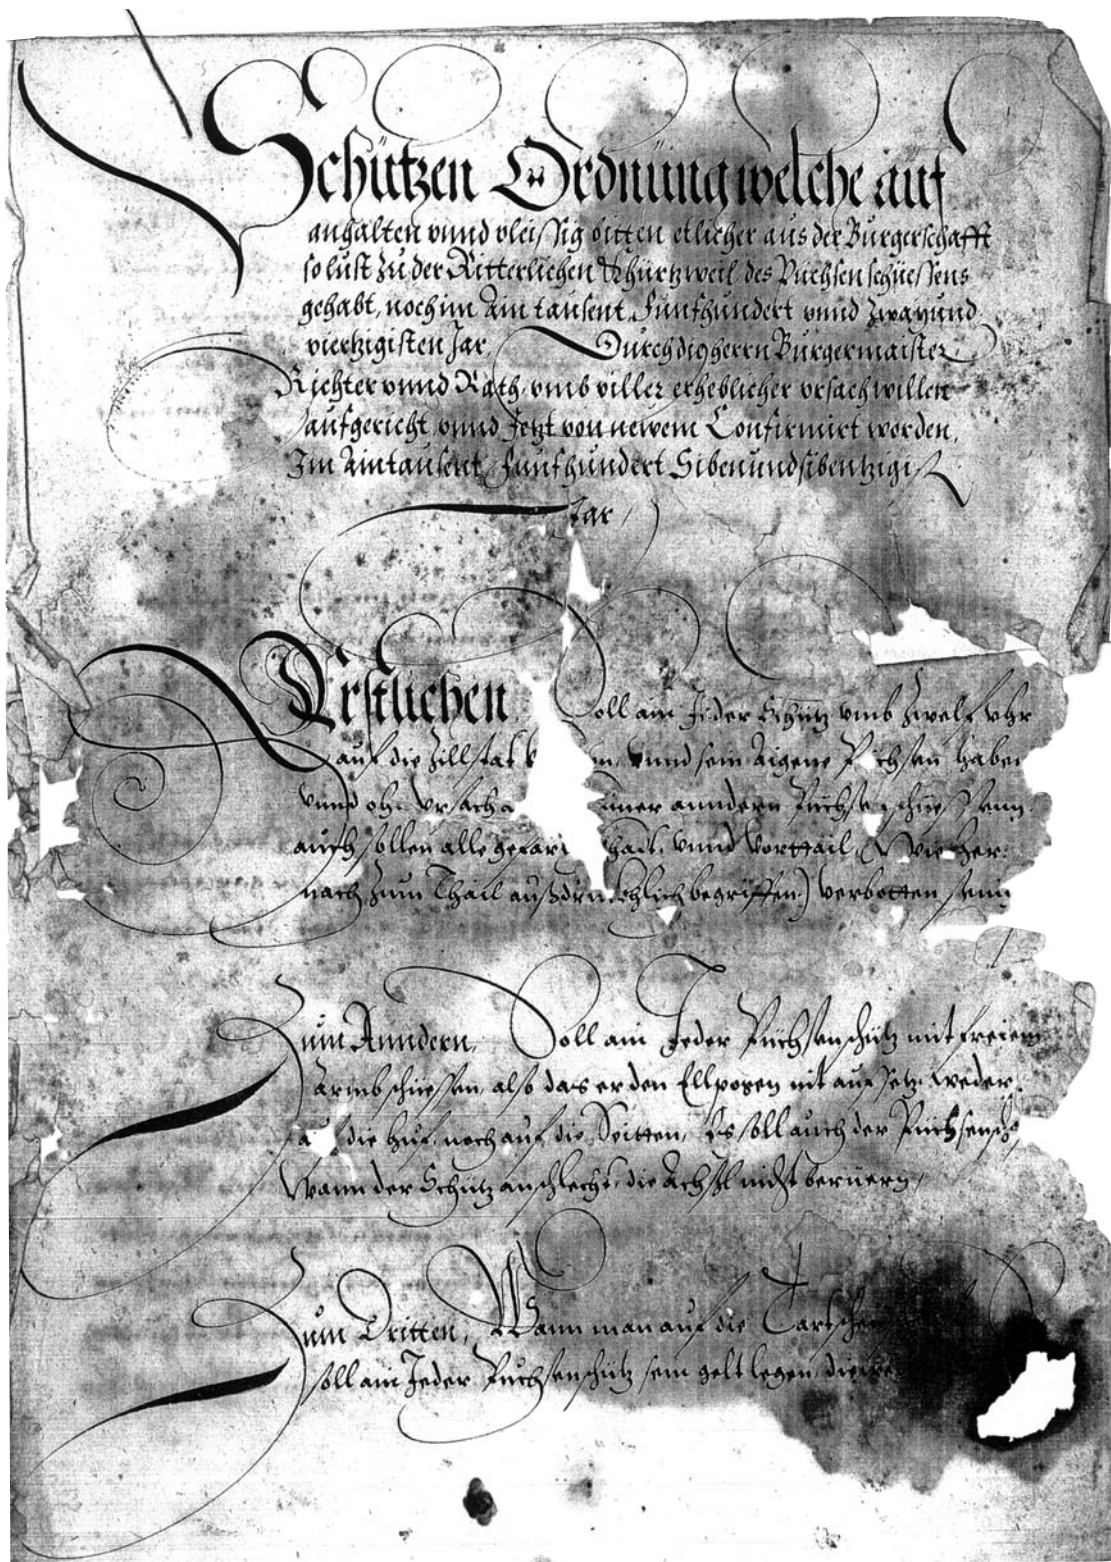 Schützen Ordnung welche auf
anhalten vnnd vleissig bitten etlicher aus der Burgerschafft
so lust zu der Ritterlichen Khürtzweil des Püchsen schüessens
gehabt, noch im Ain tausent Funfhundert vnnd Zwayund
viertzigisten Jar Durch die herrn Burgermaister
Richter vnnd Rath, vmb viller erheblicher vrsach willen
aufgericht vnnd Jetzt von newem Confirmirt worden,
Im Aintausent Funfhundert Sibenundsibentzigist
Jar
Erstlichen Soll ain Jeder Schütz vmb Zwelf vhr
auf die Zillstat vnnd sein Aigene haben
vnnd vrsach ainer anndern
auch sollen alle vnnd Vorttail, (Wie her:
nach zum Thail begriffen) verbotten sein
Zum Anndern, Soll ain Jeder Püchsenschütz mit freiem
armb schiessen, also das er den Ellpogen nit auf setz, weder
auf die Huf, noch auf die Seitten, Es soll auch der
Wann der Schütz anschlecht, die Achsl nicht beruern,
Zum Dritten, Wann man auf die
soll ain Jeder Püchsenschütz sein gelt legen,